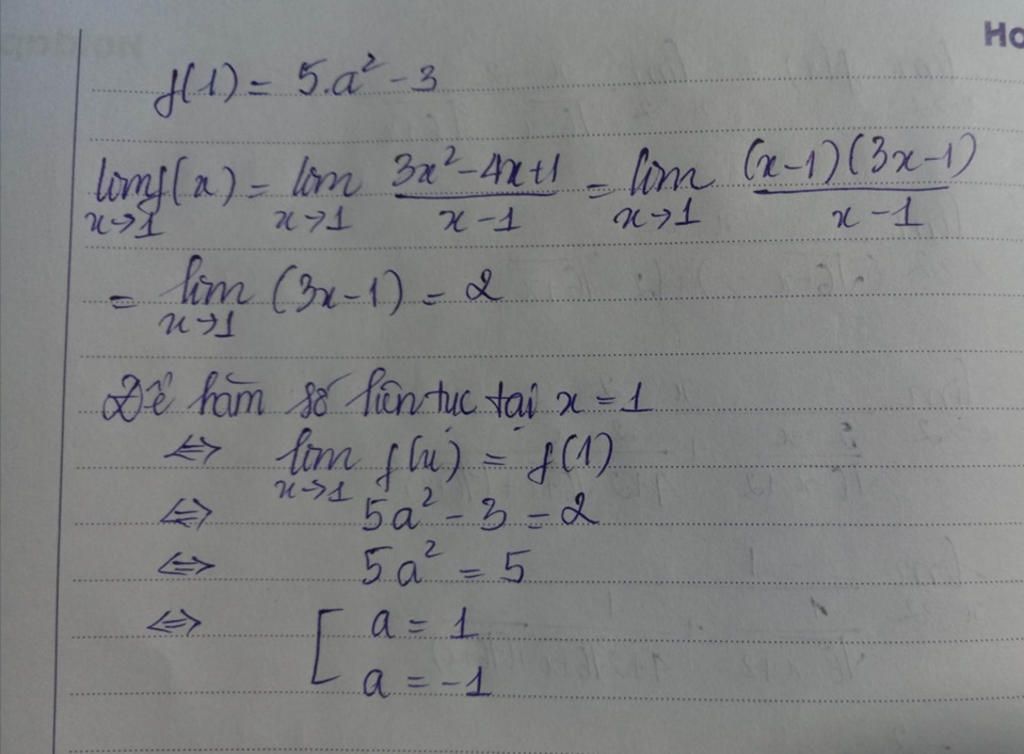 Ho
f(1) = 5.a² - 3
lim f(x) = lim (3x² - 4x + 1)/(x - 1) = lim (x-1)(3x-1)/(x-1)
x→1 x→1 x→1
= lim (3x-1) = 2
x→1
Để hàm số liên tục tại x = 1
⇔ lim f(x) = f(1)
x→1
⇔ 5a² - 3 = 2
⇔ 5a² = 5
⇔ [ a = 1
a = -1